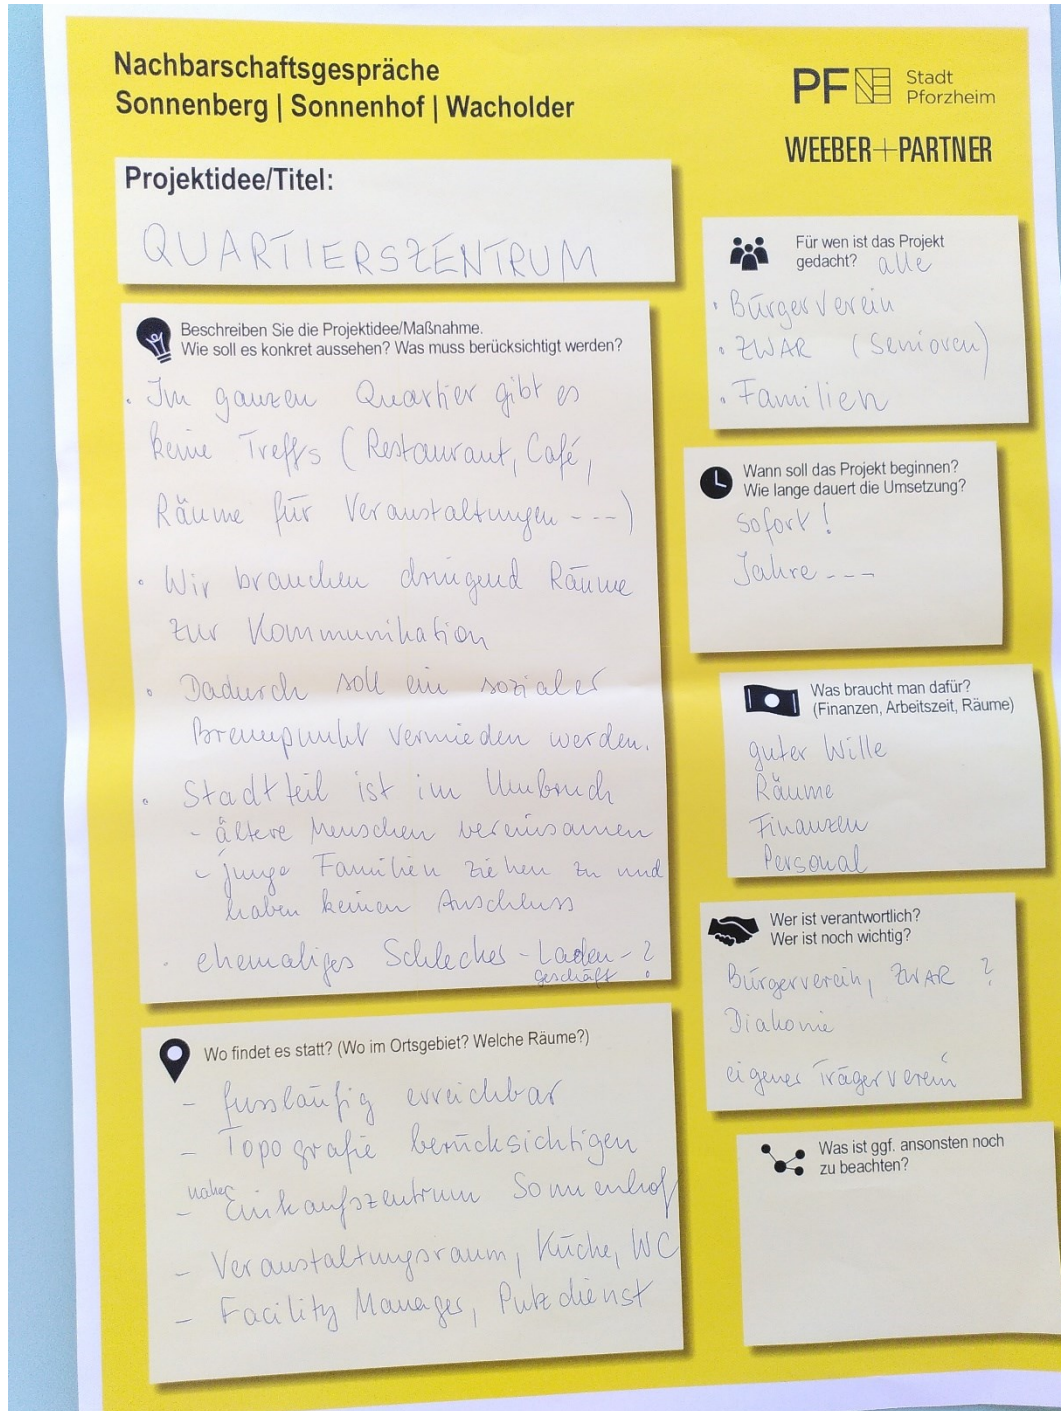 Nachbarschaftsgespräche
Sonnenberg | Sonnenhof | Wacholder
PF Stadt
Pforzheim
WEEBER+PARTNER
Projektidee/Titel:
QUARTIERSZENTRUM
Beschreiben Sie die Projektidee/Maßnahme.
Wie soll es konkret aussehen? Was muss berücksichtigt werden?
· Im ganzen Quartier gibt es
keine Treffs (Restaurant, Café,
Räume für Veranstaltungen ---)
· Wir brauchen dringend Räume
zur Kommunikation
· Dadurch soll ein sozialer
Brennpunkt vermieden werden.
· Stadtteil ist im Umbruch
- ältere Menschen vereinsamen
- junge Familien ziehen zu und
haben keinen Anschluss
· ehemaliges Schlecker-Laden-?
geschäft
Wo findet es statt? (Wo im Ortsgebiet? Welche Räume?)
- fussläufig erreichbar
- Topografie berücksichtigen
- nahe Einkaufszentrum Sonnenhof
- Veranstaltungsraum, Küche, WC
- Facility Manager, Putzdienst
Für wen ist das Projekt
gedacht? alle
· Bürgerverein
· ZWAR (Senioren)
· Familien
Wann soll das Projekt beginnen?
Wie lange dauert die Umsetzung?
Sofort!
Jahre ---
Was braucht man dafür?
(Finanzen, Arbeitszeit, Räume)
guter Wille
Räume
Finanzen
Personal
Wer ist verantwortlich?
Wer ist noch wichtig?
Bürgerverein, ZWAR ?
Diakonie
eigener Trägerverein
Was ist ggf. ansonsten noch
zu beachten?